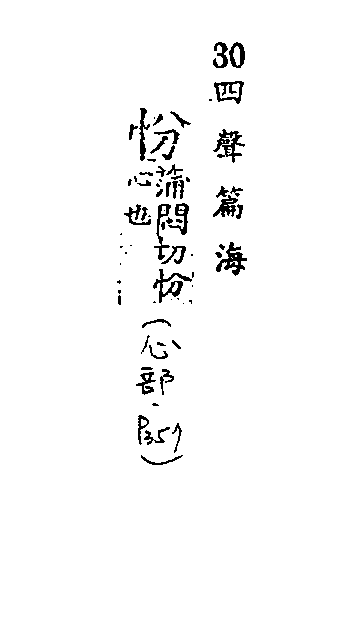 30四聲篇海
㤋蒲悶切㤋
心也
(心部、P.357)